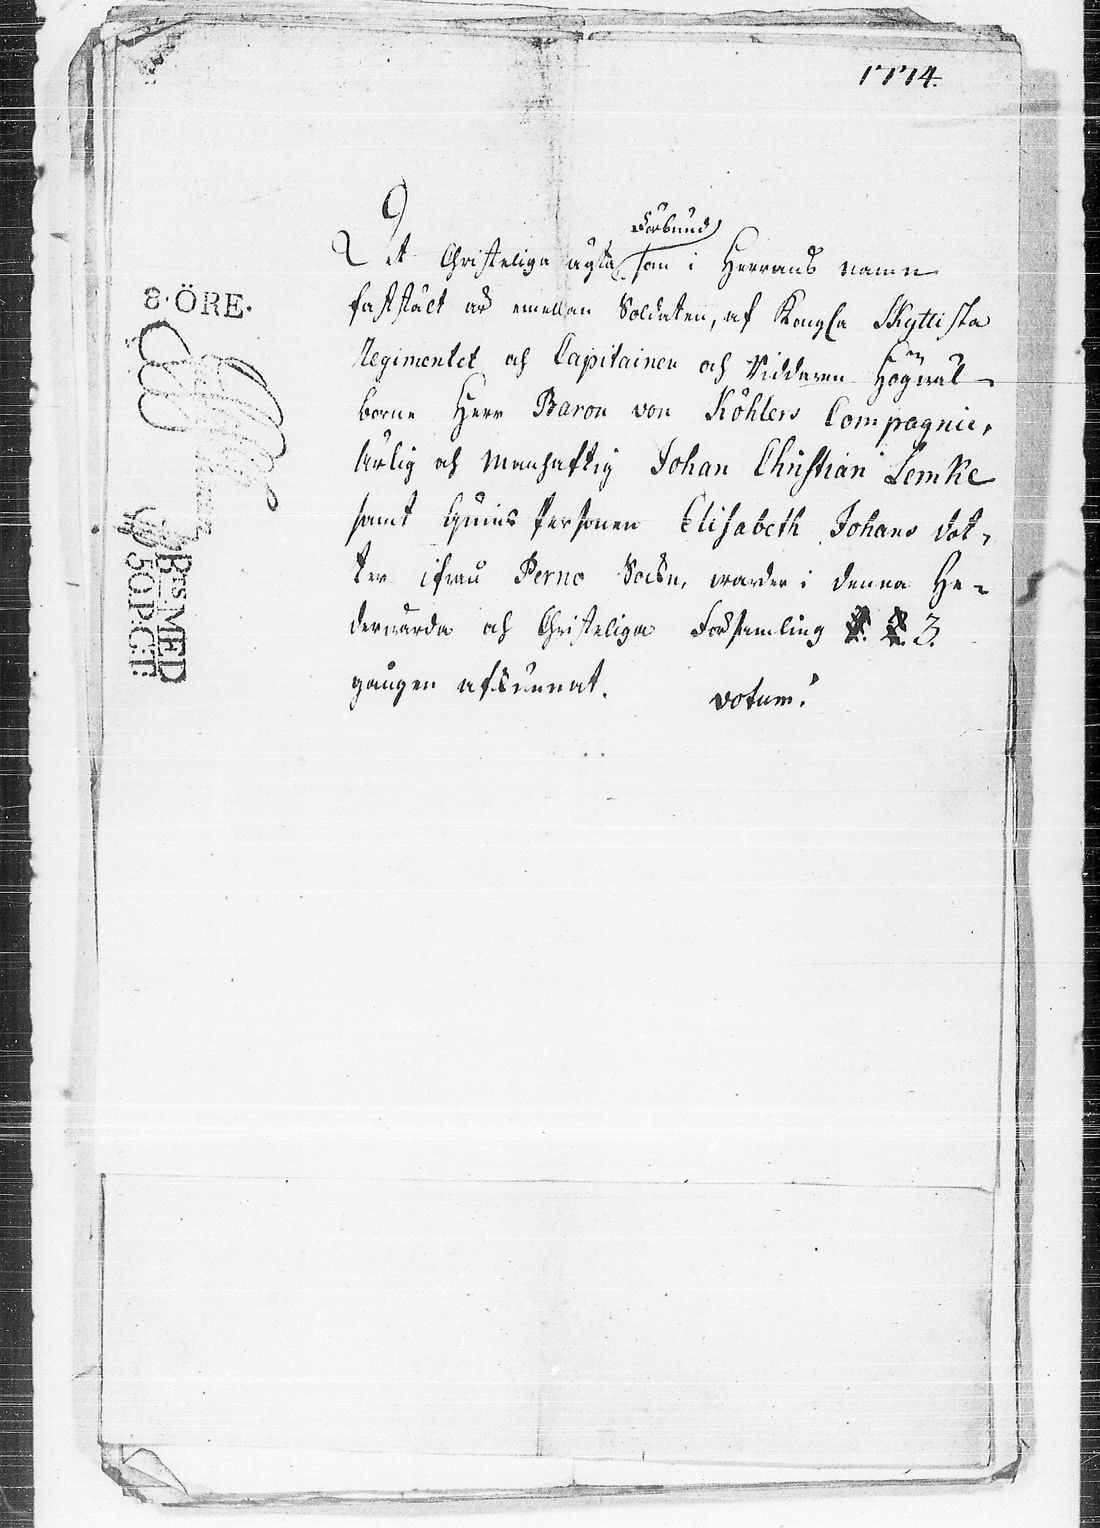 1774.
Förbund
Det Christeliga ägta som i Herrans namn
faststält är emellan Soldaten, af Kongla Skyttiska
Regimentet och Capitainen och Riddaren Högwäl-
borne Herr Baron von Köhlers Compagnie,
Ärlig och Manhaftig Johan Christian Lemke
samt Quins Personen Elisabeth Johans dot-
ter ifrån Perno Sockn, warder i denna He-
derwärda och Christeliga Församling 3.
gången afkunnat. Votum!
8·ÖRE·
BTS MED
50.P:CT: